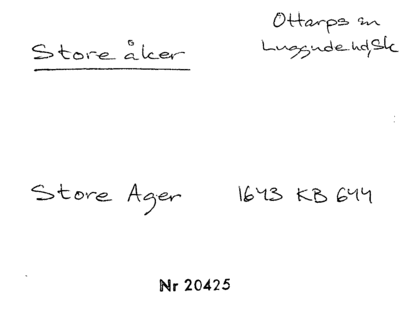 Ottarps sn
Store åker
Luggude hd, Sk
Store Ager 1643 KB 644
Nr 20425